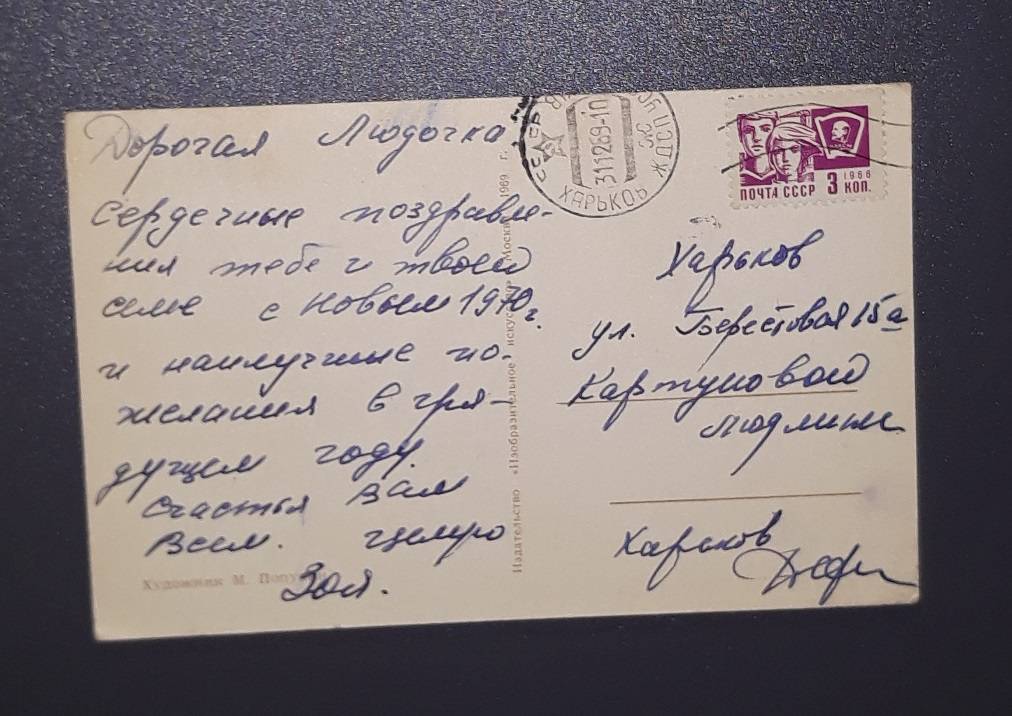 Дорогая Людочка
Сердечные поздравле-
ния тебе и твоей
семье с Новым 1970 г.
и наилучшие по-
желания в гря-
дущем году.
Счастья Вам
Всем. Целую
Зоя.
Художник М.
Издательство «Изобразительное искусство» Москва 1969 г.
ХАРЬКОВ
311269-10
ЖДСП
ПОЧТА СССР 3 КОП.
1966
Харьков
ул. Берестовая 15а
Картуновой
Людмиле
Харьков